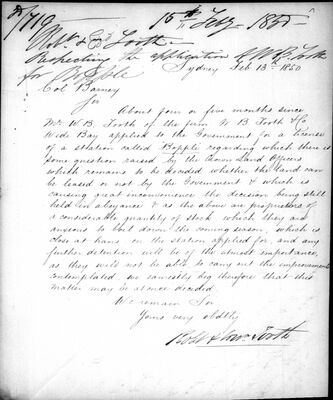 15th Feby 1850
Robt & Ed Tooth
Respecting the application of W B Tooth
for Bopple
Sydney Feb 13th 1850
Col Barney
Sir
About four or five months since
Mr W. B. Tooth of the firm W B Tooth & Co
Wide Bay applied to the Government for a license
of a station called Bopple regarding which there is
some question raised by the Crown Land Officers
which remains to be decided whether the land can
be leased or not by the Government & which is
causing great inconvenience the decision being still
held in abeyance & as the above are proprietors of
a considerable quantity of stock which they are
anxious to boil down the coming season, which is
close at hand on the station applied for, and any
further detention will be of the utmost importance,
as they will not be able to carry out the improvements
contemplated we earnestly beg therefore that this
matter may be at once decided
We remain Sir
Yours very obdtly
Robt & Edwn Tooth